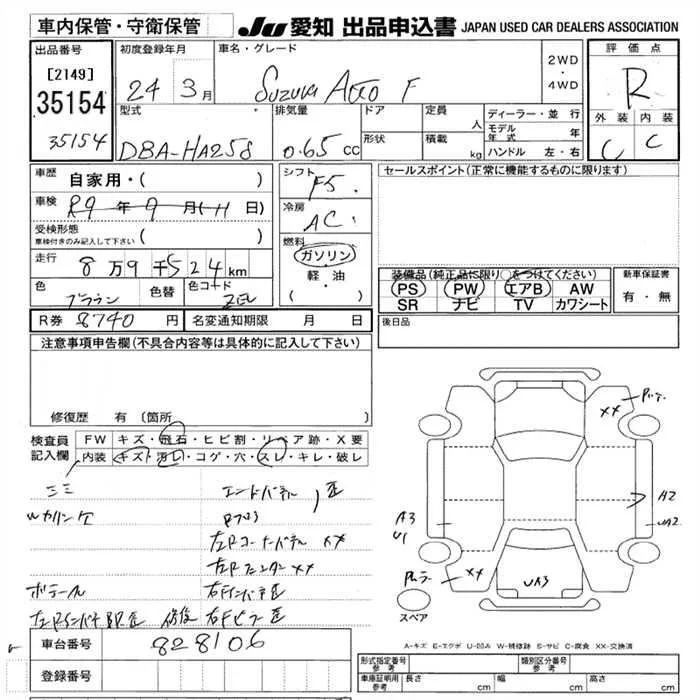 車内保管・守衛保管
JU 愛知 出品申込書 JAPAN USED CAR DEALERS ASSOCIATION
出品番号
[2149]
35154
35154
初度登録年月
24年 3月
車名・グレード
Suzuki Alto F
2WD
・
4WD
評価点
R
外装 内装
C C
型式
DBA-HA25S
排気量
0.65 cc
ドア
形状
定員
人
積載
kg
ディーラー・並行
モデル年式 年
ハンドル 左・右
車歴
自家用・( )
車検
R9 年 9 月(-11 日)
受検形態
車検付きのみ記入して下さい ( )
走行
8万9千524km
色
ブラウン
色替
色コード
ZEL
シフト
F5.
冷房
AC
燃料
ガソリン
軽・油
( ・ )
セールスポイント(正常に機能するものに限ります)
装備品(純正品に限り○をつけてください)
PS PW エアB AW
SR ナビ TV カワシート
新車保証書
有・無
R券 8740 円
名変通知期限 月 日
後日品
注意事項申告欄(不具合内容等は具体的に記入して下さい)
修復歴 有(箇所
検査員
記入欄
FW キズ・飛石・ヒビ割・リペア跡・X要
内装 キズ・汚レ・コゲ・穴・スレ・キレ・破レ
エンドパネル
左Rコーナーパネル XX
左Rフェンダー XX
XX
A2
UA2
A3
U1
XX
UA3
スペア
A-キズ E-エクボ U-凹み W-補修跡 S-サビ C-腐食 XX-交換済
車台番号
828106
登録番号
形式指定番号
参考
類別区分番号
参考
車庫証明用
参考
長さ cm
幅 cm
高さ cm